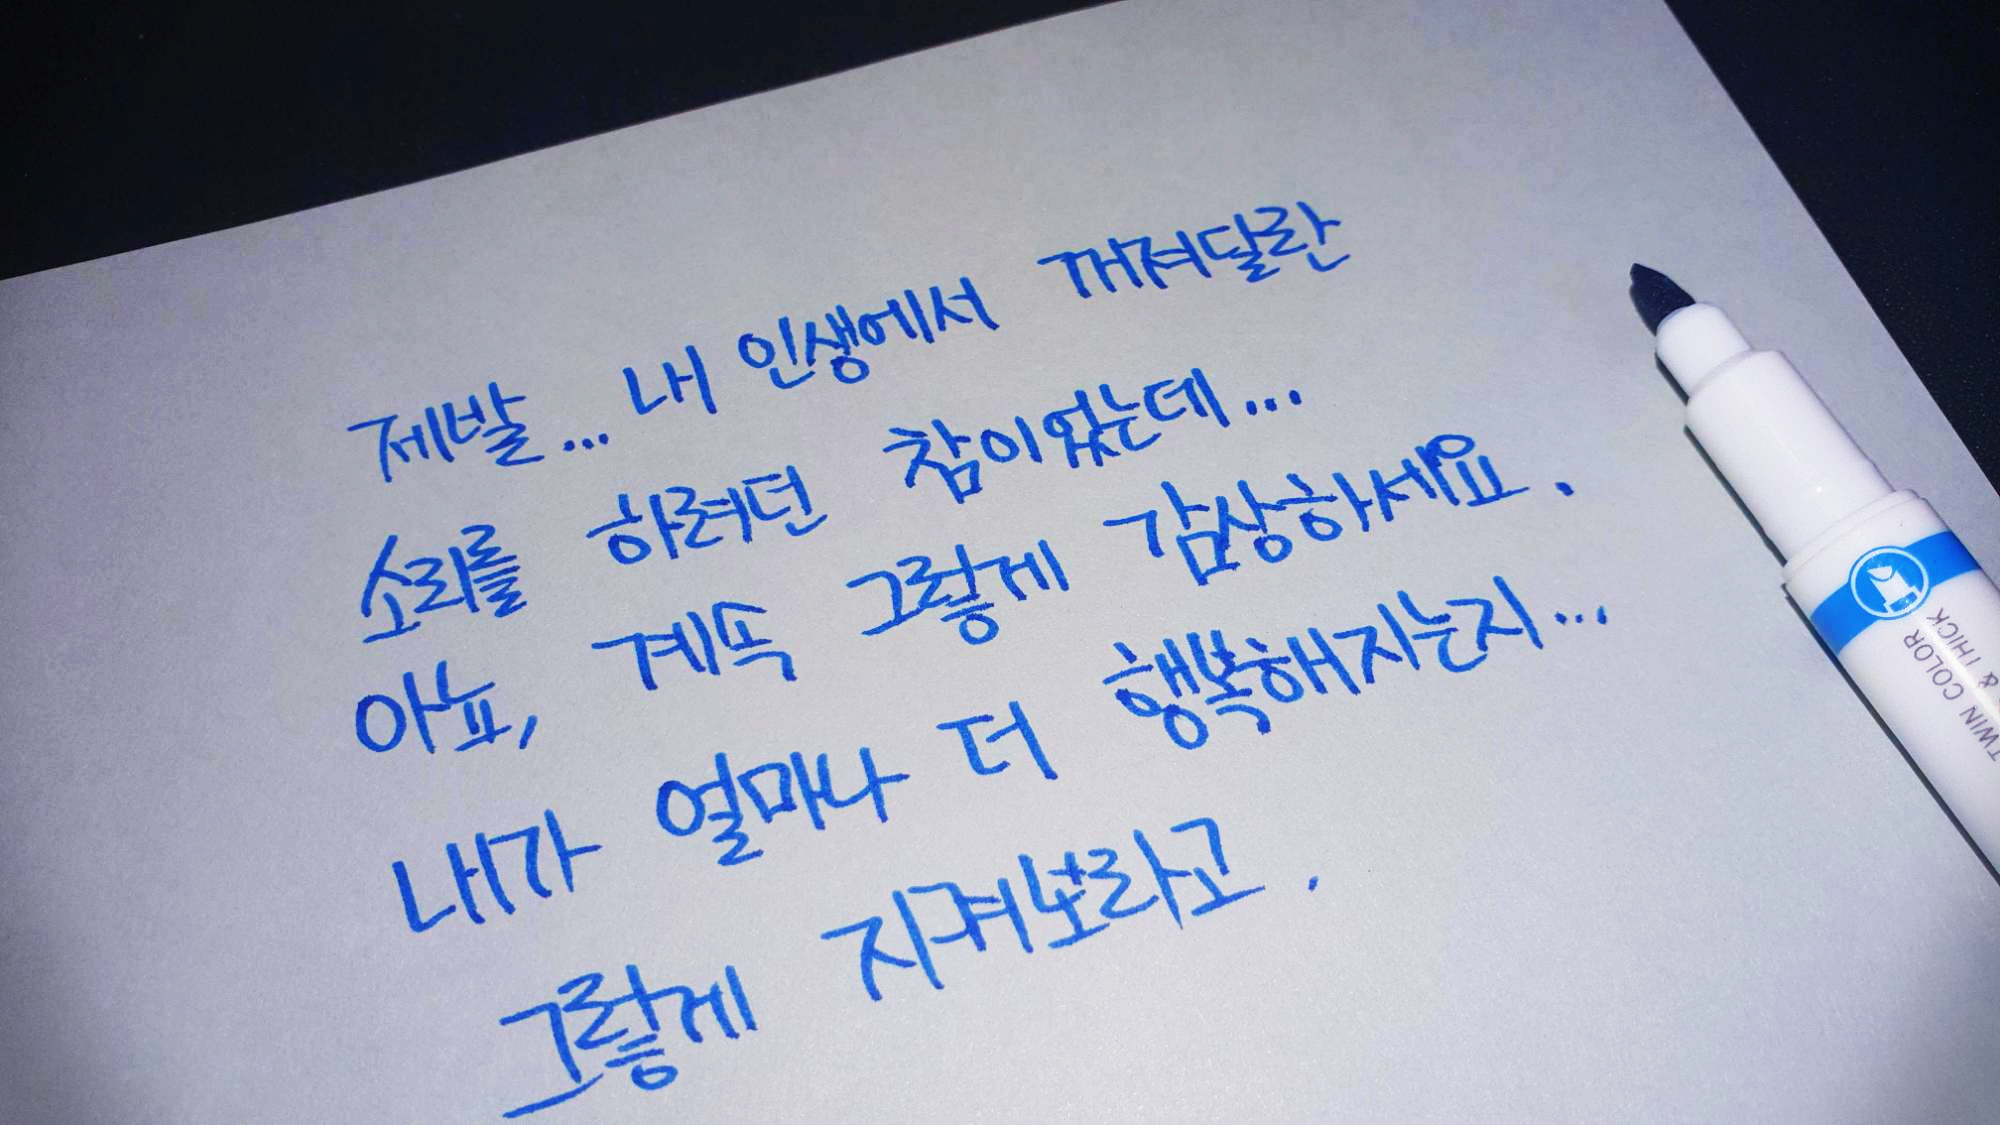 제발... 내 인생에서 꺼져달란
소리를 하려던 참이었는데...
아뇨, 계속 그렇게 감상하세요.
내가 얼마나 더 행복해지는지...
그렇게 지켜보라고.
TWIN COLOR
& THICK